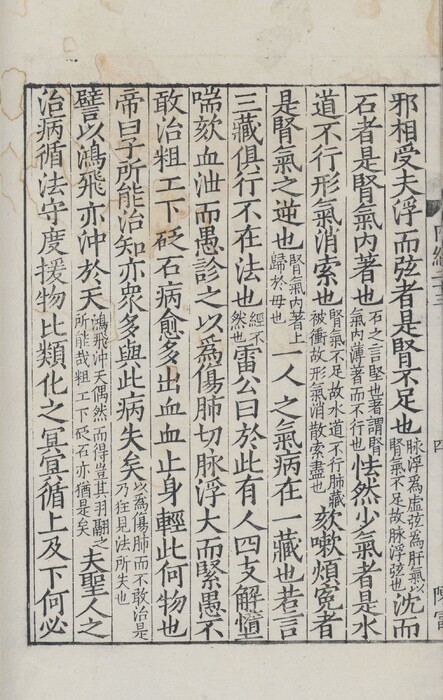 邪相受夫浮而弦者是腎不足也脉浮為虛弦為肝氣以腎氣不足故脉浮弦也沈而
石者是腎氣内著也石之言堅也著謂腎氣内薄著而不行也怯然少氣者是水
道不行形氣消索也腎氣不足故水道不行肺藏被衝故形氣消散索盡也欬嗽煩寃者
是腎氣之逆也腎氣内著上歸於母也一人之氣病在一藏也若言
三藏俱行不在法也經不然也雷公曰於此有人四支解墯
喘欬血泄而愚診之以為傷肺切脉浮大而緊愚不
敢治粗工下砭石病愈多出血血止身輕此何物也
帝曰子所能治知亦衆多與此病失矣以為傷肺而不敢治是乃狂見法所失也
譬以鴻飛亦沖於天鴻飛沖天偶然而得豈其羽翮之所能哉粗工下砭石亦猶是矣夫聖人之
治病循法守度援物比類化之冥冥循上及下何必
四